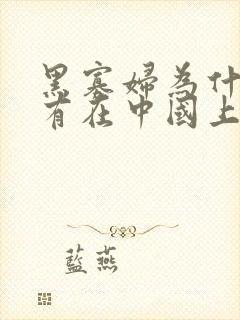 黑寡婦為什
有在中國上
藍燕